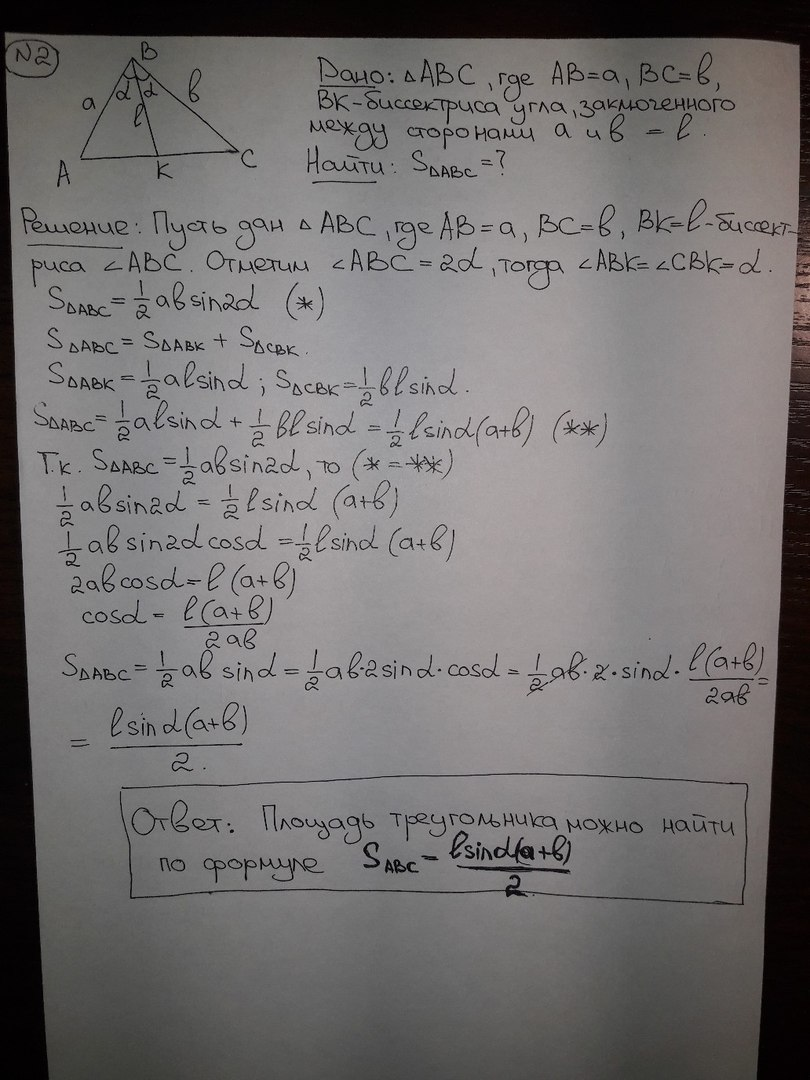 N2
B
a
α
α
в
l
A
K
C
Дано: △ABC, где AB=a, BC=в,
BK-биссектриса угла, заключенного
между сторонами a и в = l.
Найти: S△ABC=?
Решение: Пусть дан △ABC, где AB=a, BC=в, BK=l-биссект-
риса ∠ABC. Отметим ∠ABC=2α, тогда ∠ABK=∠CBK=α.
S△ABC=1/2 aв sin2α (*)
S△ABC=S△ABK+S△CBK.
S△ABK=1/2 al sinα; S△CBK=1/2 вl sinα.
S△ABC=1/2 al sinα+1/2 вl sinα=1/2 l sinα(a+в) (**)
Т.к. S△ABC=1/2 aв sin2α, то (*=**)
1/2 aв sin2α=1/2 l sinα (a+в)
1/2 aв sin2α cosα=1/2 l sinα (a+в)
2aв cosα=l(a+в)
cosα=l(a+в)/2aв
S△ABC=1/2 aв sinα=1/2 aв·2sinα·cosα=1/2 aв·2·sinα·l(a+в)/2aв=
=l sinα(a+в)/2.
Ответ: Площадь треугольника можно найти
по формуле SABC=l sinα(a+в)/2